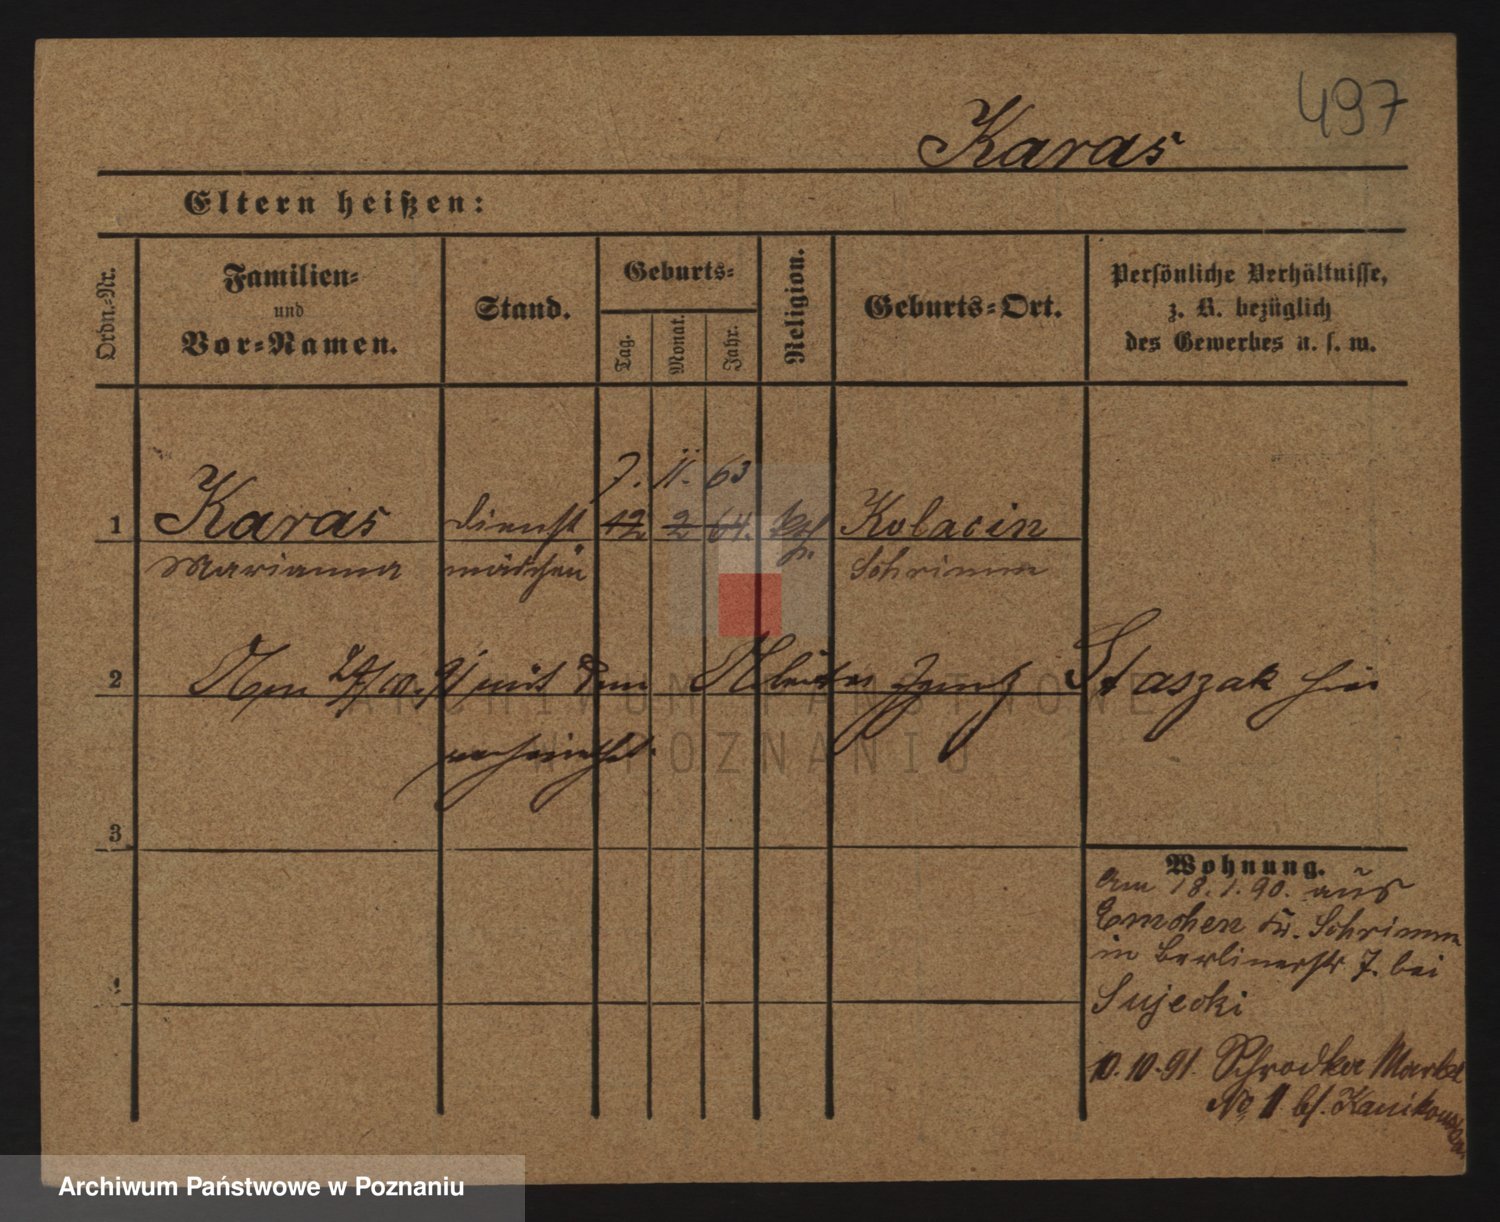 497
Karas
Eltern heißen:
Ordn.-Nr.
Familien-
und
Vor-Namen.
Stand.
Geburts-
Tag.
Monat.
Jahr.
Religion.
Geburts-Ort.
Persönliche Verhältnisse,
z. B. bezüglich
des Gewerbes u. s. w.
7. 11. 63
1 Karas Dienst 12 2 64. kth. Kolacin
Marianna mädchen Schrimm
2 Am 24/10. 91 mit dem Arbeiter Ignatz Staszak hier
verheirathet.
3
4
Wohnung.
Am 18.1.90. aus
Emchen Kr. Schrimm
in Berlinerstr 7. bei
Sujecki
10.10.91. Schrodka Markt
No 11 b/. Kanikowska
ARCHIWUM PAŃSTWOWE
W POZNANIU
Archiwum Państwowe w Poznaniu